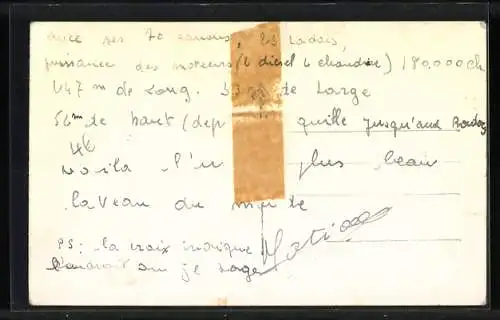 avec ses 70 canons, les radars,
puissance des moteurs (6 diesel 6 chaudière) 180.000 Ch
247 m de Long. 33 m de Large
56 m de haut (dep quille jusqu'aux Radar
voila l'u plus beau
du monde
PS: la croix indique
l'endroit où je loge